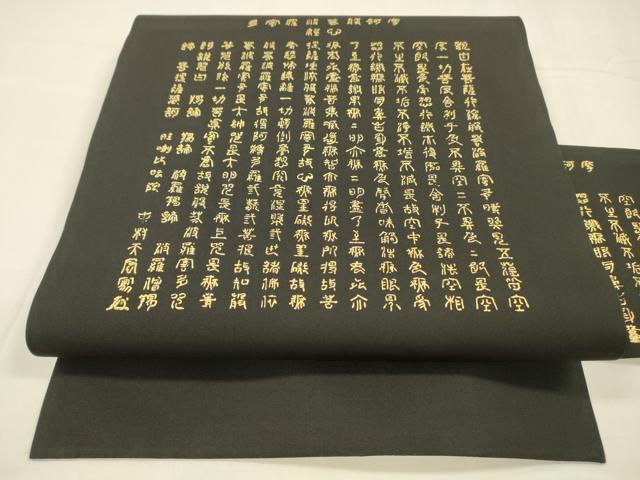 摩訶般若波羅蜜多心経
観自在菩薩行深般若波羅蜜多時照見五蘊皆空
度一切苦厄舎利子色不異空〻不異色〻即是空
空即是色受想行識亦復如是舎利子是諸法空相
不生不滅不垢不浄不増不減是故空中無色無受
想行識無眼耳鼻舌身意無色声香味触法無眼界
乃至無意識界無〻明亦無〻明尽乃至無老死亦
無老死尽無苦集滅道無智亦無得以無所得故菩
提薩埵依般若波羅蜜多故心無罣礙無罣礙故無
有恐怖遠離一切顛倒夢想究竟涅槃三世諸仏依
般若波羅蜜多故得阿耨多羅三藐三菩提故知般
若波羅蜜多是大神呪是大明呪是無上呪是無等
等呪能除一切苦真実不虚故説般若波羅蜜多呪
即説呪曰 羯諦 羯諦 波羅羯諦 波羅僧羯
諦 菩提薩婆訶